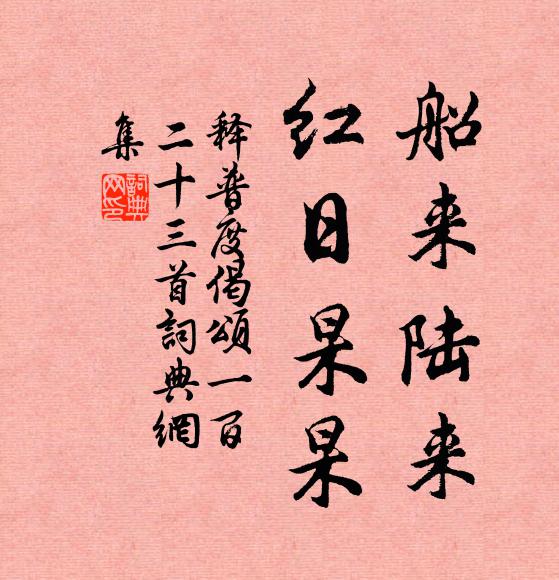 船来陆来
红日杲杲
释普度偈颂一百
二十三首詞典網
集
詞典
网印